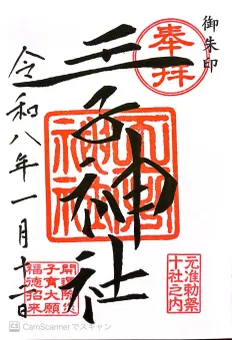 御朱印
奉拝
王子神社
元准勅祭
十社之内
開運除災
子育大願
福徳招来
令和八年一月十二日
CS CamScannerでスキャン